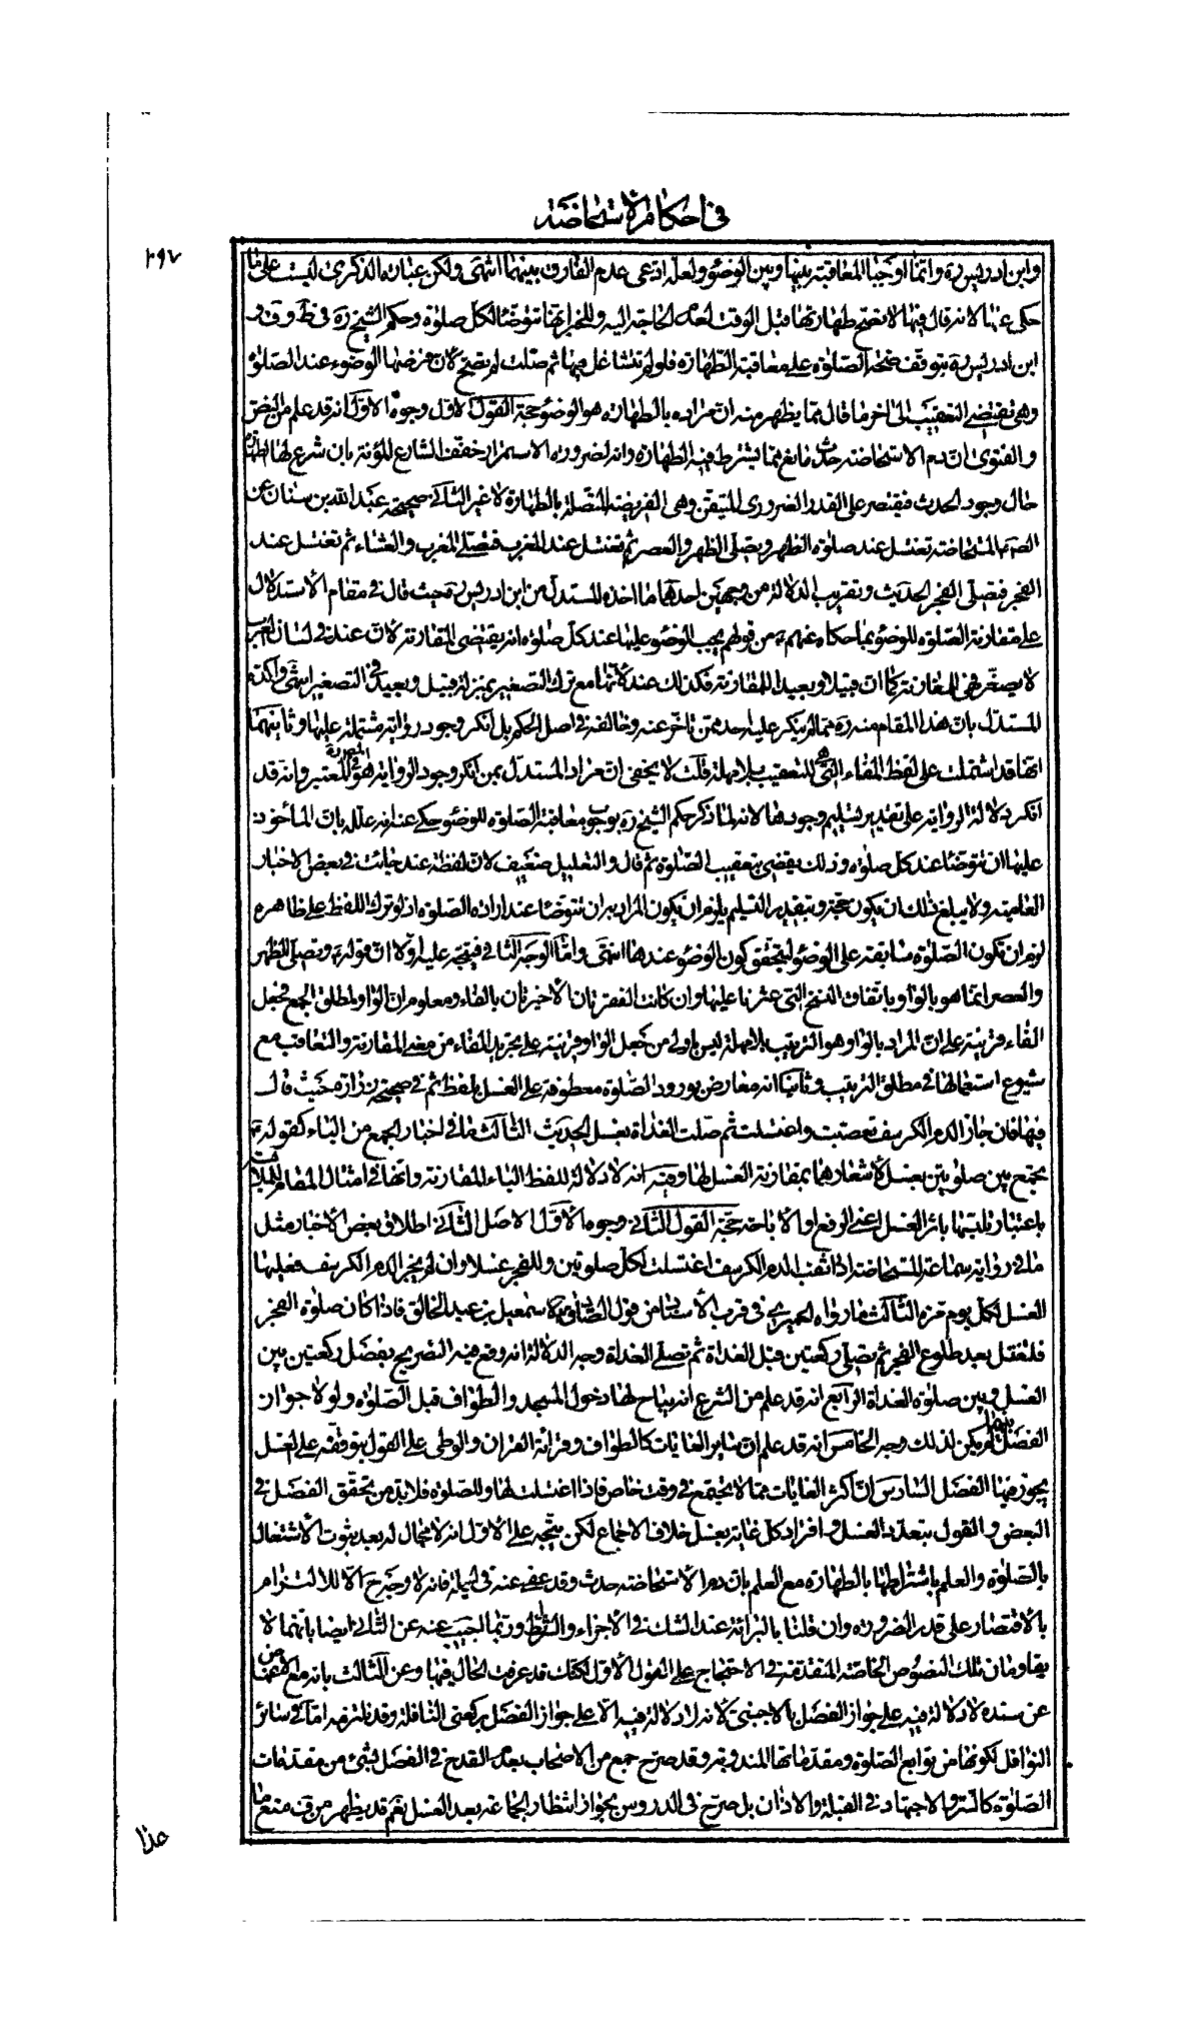 في احكام الاستحاضة
٢٩٧
وابن ادريس ره وانما اوجبا المعاقبة بينها وبين الوضوء ولعله ادعى عدم الفارق بينهما انتهى ولكن عبارة الذكرى ليست على ما
حكى عنها لانه قال فيها لا تصح طهارتها قبل الوقت لعدم الحاجة اليه وللخبر انها تتوضأ لكل صلوة وحكم الشيخ ره في ط و ف و
ابن ادريس ره بتوقف صحة الصلوة على معاقبة الطهارة فلو لم تتشاغل بها ثم صلت لم تصح لان فرضها الوضوء عند الصلوة
وهي تقتضي التعقيب الى اخر ما قال مما يظهر منه ان مراده بالطهارة هو الوضوء حجة القول الاول وجوه الاول انه قد علم من النص
والفتوى ان دم الاستحاضة حدث مانع مما يشترط فيه الطهارة وانه لضرورة الاستمرار خفف الشارع المؤنة بان شرع لها الطهارة
حال وجود الحدث فيقتصر على القدر الضروري المتيقن وهي الفريضة المتصلة بالطهارة لا غير الثاني صحيحة عبد الله بن سنان عن
الصم المستحاضة تغتسل عند صلوة الظهر وتصلى الظهر والعصر ثم تغتسل عند المغرب فتصلى المغرب والعشاء ثم تغتسل عند
الفجر فتصلى الفجر الحديث وتقريب الدلالة من وجهين احدهما ما اخذه المستدل من ابن ادريس ره حيث قال في مقام الاستدلال
على مقارنة الصلوة للوضوء بما حكاه عنهم من قولهم يجب الوضوء عليها عند كل صلوة انه يقتضي المقارنة لان عند في لسان العرب
لا يصغر فهي للمقارنة كما ان قبيلا وبعيدا للمقارنة فكذلك عند لانها مع ترك التصغير بمنزلة قبيل وبعيد في التصغير انتهى واكده
المستدل بان هذا المقام منه ره مما لم ينكر عليه احد ممن تاخر عنه وخالفه في اصل الحكم بل انكر وجود رواية مشتملة عليها وثانيهما
انها قد اشتملت على لفظ الفاء التي هي للتعقيب بلا مهلة قلت لا يخفى ان مراد المستدل بمن انكر وجود الرواية هو في المعتبر وانه قد
انكر دلالة الرواية على تقدير تسليم وجودها لانه لما ذكر حكم الشيخ ره بوجوب معاقبة الصلوة للوضوء حكى عنه انه علله بان المأخوذ
عليها ان تتوضأ عند كل صلوة وذلك يقضي بتعقيب الصلوة ثم قال والتعليل ضعيف لان لفظة عند جائت في بعض الاخبار
العامية ولا يبلغ ذلك ان يكون حجة وبتقدير التسليم يلزم ان يكون المراد به ان تتوضأ عند ارادة الصلوة اذ لو ترك اللفظ على ظاهره
لزم ان تكون الصلوة سابقة على الوضوء ليتحقق كون الوضوء عندها انتهى واما الوجه الثاني فيتجه عليه اولا ان قوله وتصلى الظهر
والعصر انما هو بالواو باتفاق النسخ التي عثرنا عليها وان كانت الفقرتان الاخيرتان بالفاء ومعلوم ان الواو لمطلق الجمع فجعل
الفاء قرينة على ان المراد بالواو هو الترتيب بلا مهلة ليس باولى من جعل الواو قرينة على تجريد الفاء من معنى المقارنة والتعاقب مع
شيوع استعمالها في مطلق الترتيب وثانيا انه معارض بورود الصلوة معطوفة على الغسل بلفظ ثم في صحيحة زرارة حيث قال
فيها فان جاز الدم الكرسف تعصبت واغتسلت ثم صلت الغداة بغسل الحديث الثالث ما في اخبار الجمع من الباء كقوله تم
تجتمع بين صلوتين بغسل لاشعارها بمقارنة الغسل لها وفيه انه لا دلالة للفظ الباء للمقارنة وانها في امثال المقام للملابسة
باعتبار تلبسها باثر الغسل اعني الرفع او الاباحة حجة القول الثاني وجوه الاول الاصل الثاني اطلاق بعض الاخبار مثل
ما في رواية سماعة المستحاضة اذا ثقب الدم الكرسف اغتسلت لكل صلوتين وللفجر غسلا وان لم يجز الدم الكرسف فعليها
الغسل لكل يوم مرة الثالث ما رواه الحميري في قرب الاسناد من قول الصادق لاسمعيل بن عبد الخالق فاذا كان صلوة الفجر
فلتغتسل بعد طلوع الفجر ثم تصلى ركعتين قبل الغداة ثم تصلى الغداة وجه الدلالة انه وقع فيه التصريح بفصل ركعتين بين
الغسل وبين صلوة الغداة الرابع انه قد علم من الشرع انه يباح لها دخول المسجد والطواف قبل الصلوة ولولا جواز
الفصل بينهما لم يكن لذلك وجه الخامس انه قد علم ان سائر الغايات كالطواف وقرائة القران والوطى على القول بتوقفه على الغسل
يجوز فيها الفصل السادس ان اكثر الغايات مما لا يجتمع في وقت خاص فاذا اغتسلت لها وللصلوة فلا بد من تحقق الفصل في
البعض والقول بتعدد الغسل وافراد كل غاية بغسل خلاف الاجماع لكن يتجه على الاول انه لا مجال له بعد ثبوت الاشتغال
بالصلوة والعلم باشتراطها بالطهارة مع العلم بان دم الاستحاضة حدث وقد عفى عنه في الجملة فانه لا وجه ح الا للالتزام
بالاقتصار على قدر الضرورة وان قلنا بالبرائة عند الشك في الاجزاء والشرائط وربما اجيب عنه عن الثاني ايضا بانهما لا
يقاومان تلك النصوص الخاصة المتقدمة في الاحتجاج على القول الاول لكنك قد عرفت الحال فيها وعن الثالث بانه مع الغض
عن سنده لا دلالة فيه على جواز الفصل بالاجنبى لانه لا دلالة فيه الا على جواز الفصل بركعتي النافلة وقد نلتزمه اما في سائر
النوافل لكونها من توابع الصلوة ومقدماتها المندوبة وقد صرح جمع من الاصحاب بعدم القدح في الفصل بشئ من مقدمات
الصلوة كالستر والاجتهاد في القبلة والاذان بل صرح في الدروس بجواز انتظار الجماعة بعد الغسل نعم قد يظهر من منع ما
هذا